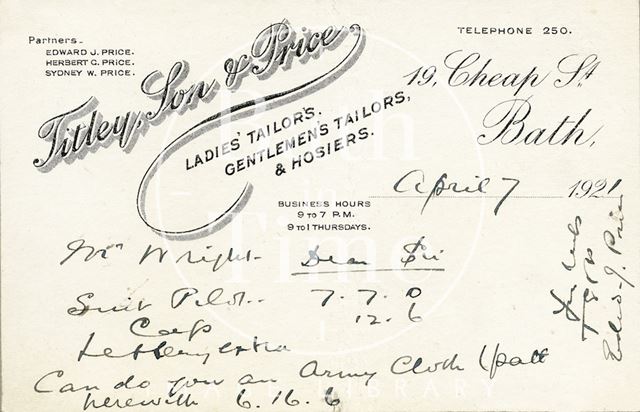 Partners.
EDWARD J. PRICE.
HERBERT G. PRICE.
SYDNEY W. PRICE.
TELEPHONE 250.
Titley, Son & Price
LADIES' TAILORS.
GENTLEMEN'S TAILORS,
& HOSIERS.
19, Cheap St
Bath,
April 7 1921
BUSINESS HOURS
9 TO 7 P.M.
9 TO 1 THURSDAYS.
Mr Wright Dear Sir
Suit Pilot. 7. 7. 0
Cap 12. 6
Lettering extra
Can do you an Army Cloth (patt
herewith 6. 16. 6
T S & P
Edwd J. Price
Bath
in
Time
LIBRARY